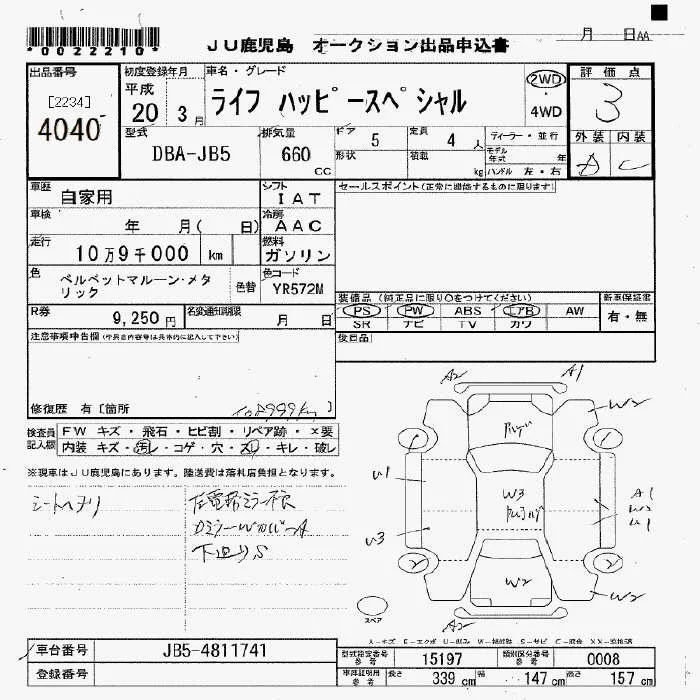 *0022210*
JU鹿児島 オークション出品申込書
月 日AA
出品番号
[2234]
4040
初度登録年月
平成
20 3月
車名・グレード
ライフ ハッピースペシャル
2WD
・
4WD
評価点
3
外装 内装
C
型式
DBA-JB5
排気量
660
CC
ギア 5
形状
定員 4 人
積載 kg
ディーラー・並行
モデル年式 年
ハンドル 左・右
車歴
自家用
シフト
IAT
車検
年 月( 日)
冷房
AAC
走行
10万9千000 km
燃料
ガソリン
色
ベルベットマルーン・メタ
リック
色替
色コード
YR572M
セールスポイント(正常に機能するものに限ります)
R券
9,250 円
名変通知期限
月 日
装備品(純正品に限り○をつけてください)
PS PW ABS エアB AW
SR ナビ TV カワ
新車保証書
有・無
後日品
注意事項申告欄
修復歴 有〔箇所 〕
検査員
記入欄
FW キズ・飛石・ヒビ割・リペア跡・×要
内装 キズ・汚レ・コゲ・穴・スレ・キレ・破レ
※現車はJU鹿児島にあります。陸送費は落札店負担となります。
下廻りS
A2 A1
W2
U1
W3
A1
W2
U1
U3
W2
W2
A2
スペア
車台番号
JB5-4811741
登録番号
型式指定番号
参考
15197
類別区分番号
参考
0008
車庫証明用
参考
長さ 339 cm 幅 147 cm 高さ 157 cm